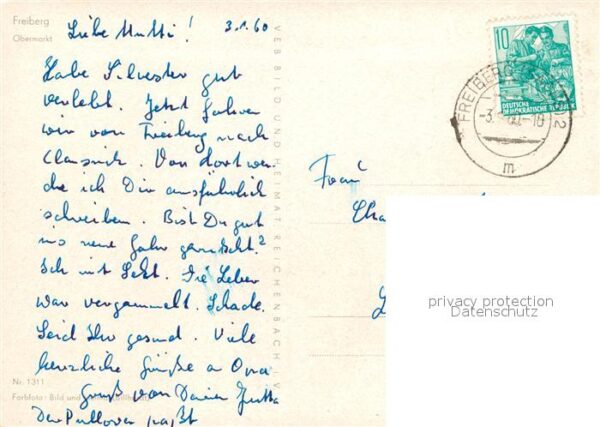 Freiberg
Obermarkt
Liebe Mutti! 3.1.60
Habe Silvester gut
verlebt. Jetzt fahren
wir von Freiberg nach
Clausnitz. Von dort wer-
de ich Dir ausführlich
schreiben. Bist Du gut
ins neue Jahr gerutscht?
Ich mit Sekt. Die Leber
war vergammelt. Schade.
Seid Ihr gesund. Viele
herzliche Grüße an Oma
Gruß von Deiner Jutta
Der Pullover paßt
Nr. 1311
Farbfoto: Bild und
VEB BILD UND HEIMAT REICHENBACH I. V.
10
DEUTSCHE
DEMOKRATISCHE REPUBLIK
FREIBERG
-3. 60.-10
m
Frau
Cha
privacy protection
Datenschutz